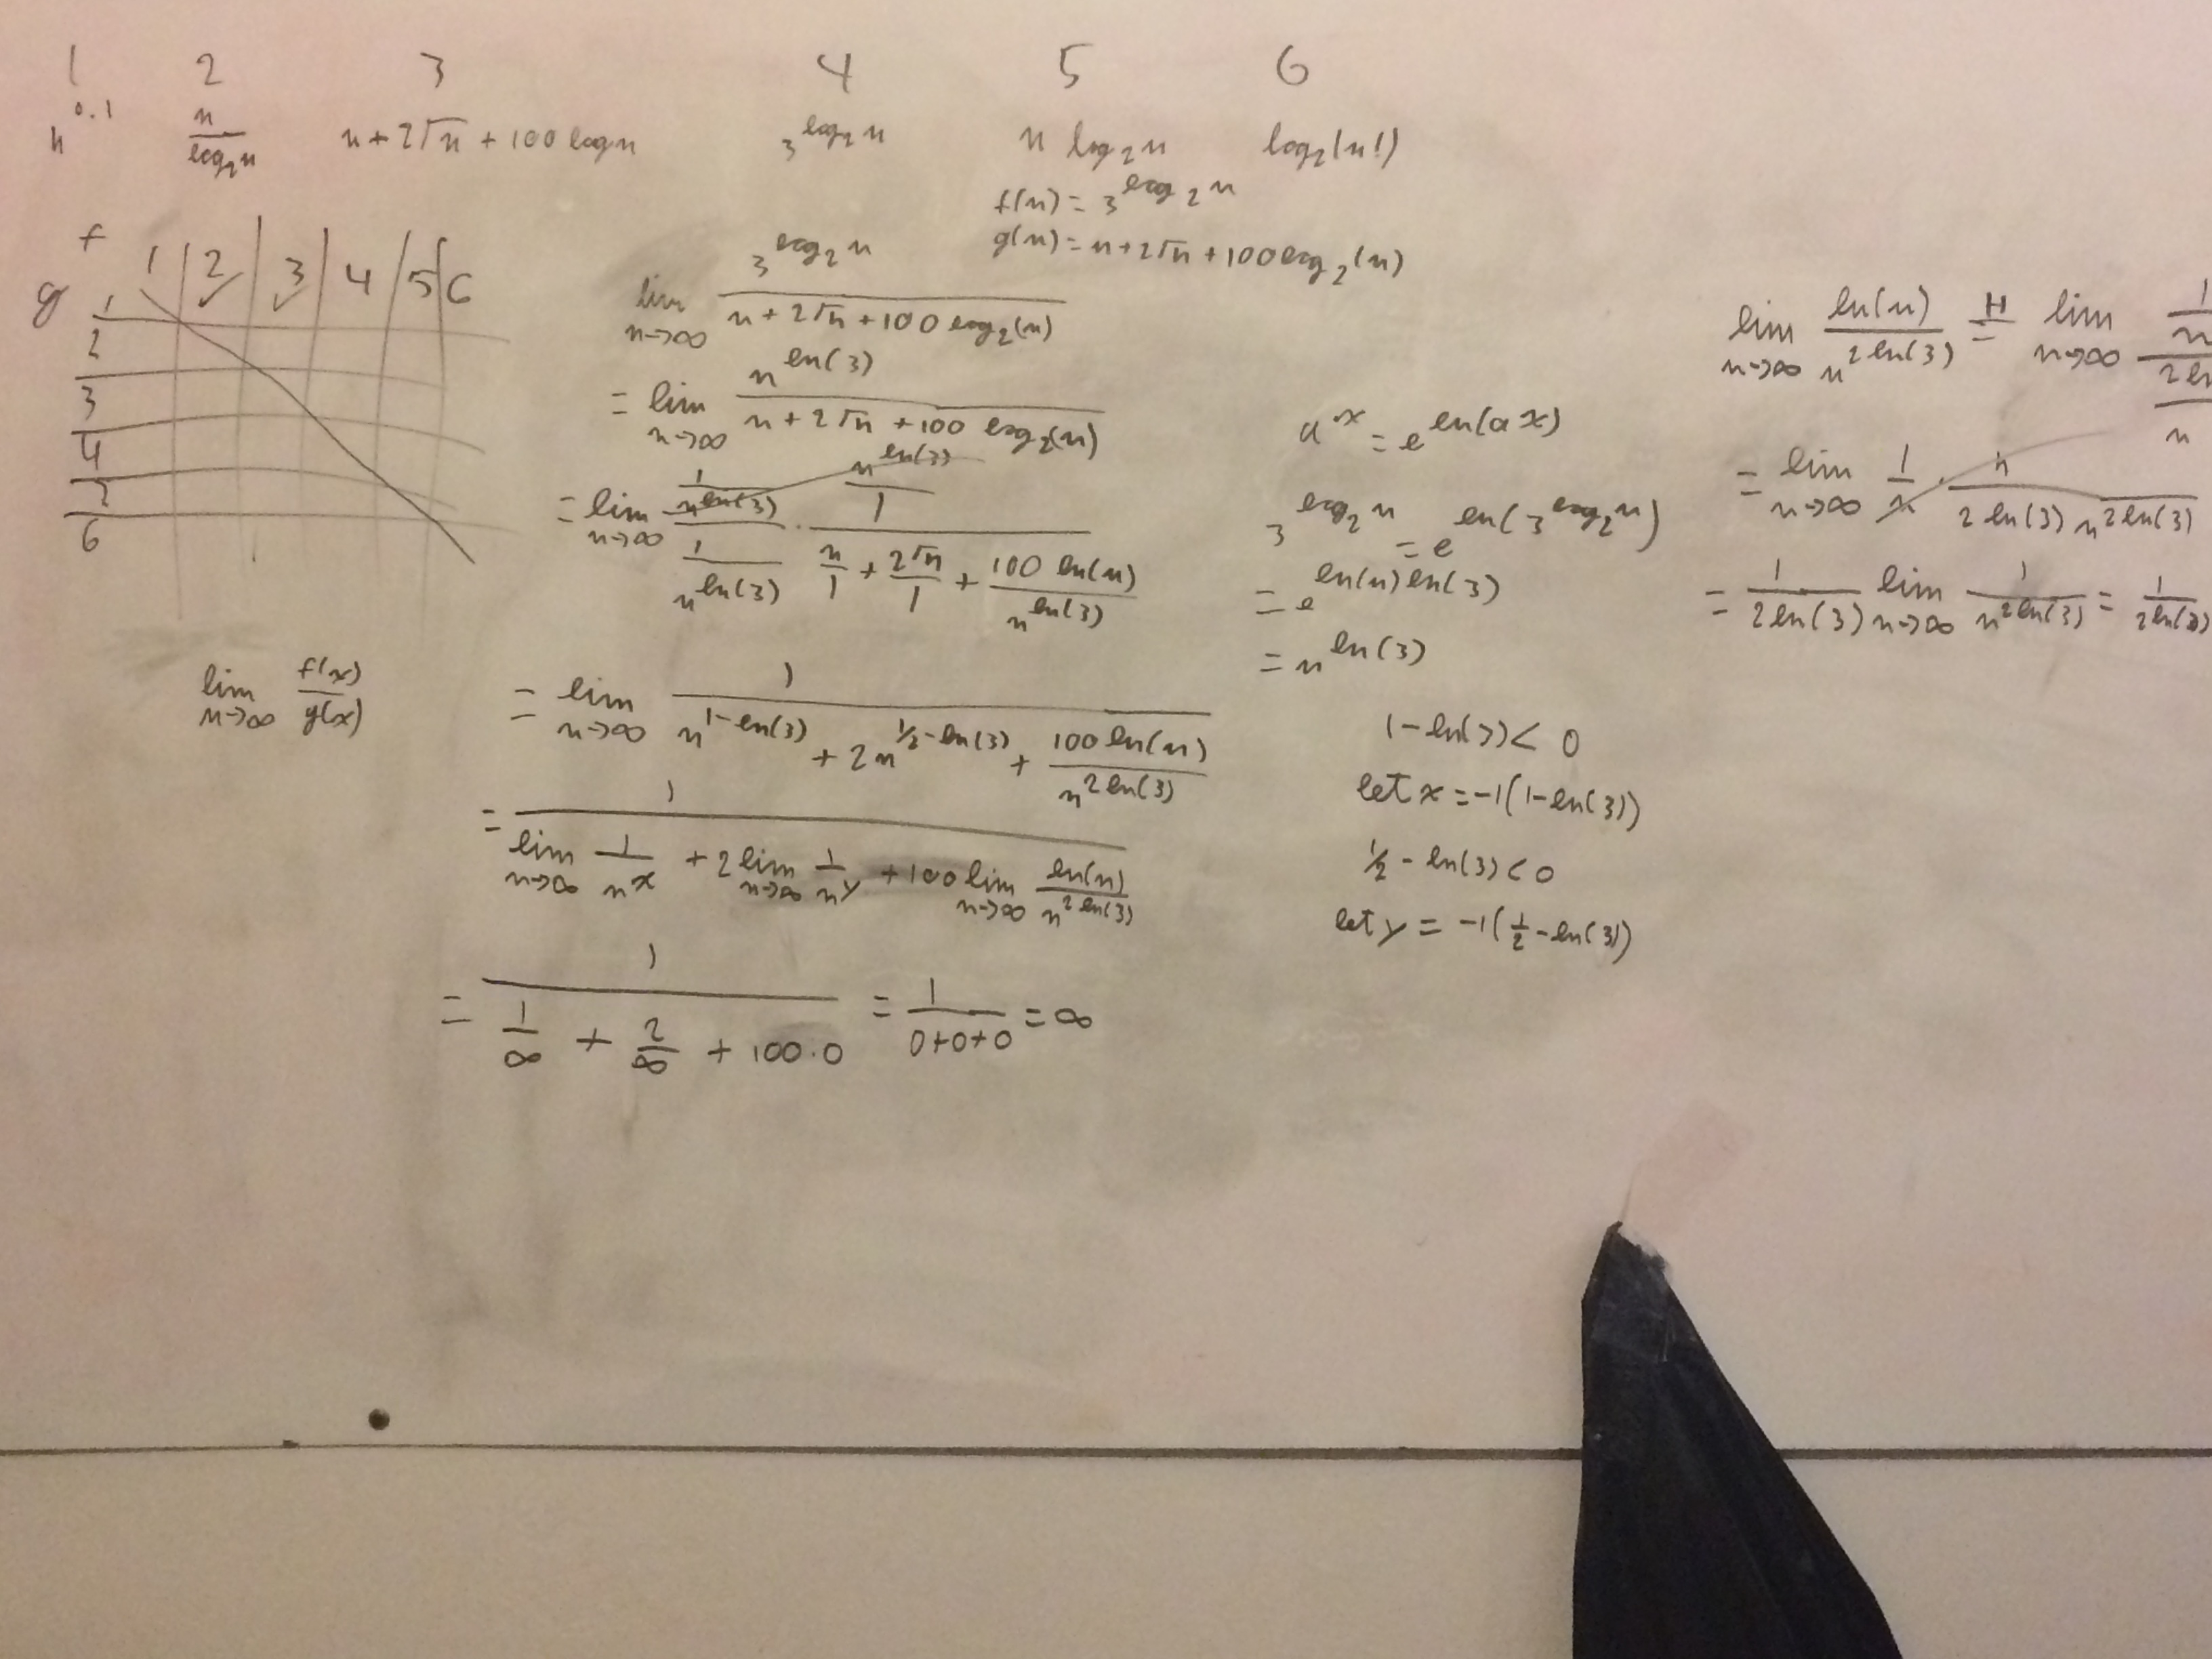 1 2 3 4 5 6
n^0.1 n/log₂n n+2√n+100 log n 3^log₂n n log₂n log₂(n!)
f(n)=3^log₂n
g(n)=n+2√n+100log₂(n)
f
g 1 2✓ 3✓ 4 5 6
1
2
3
4
6
lim n→∞ f(x)/g(x)
lim n→∞ 3^log₂n / (n+2√n+100log₂(n))
= lim n→∞ n^ln(3) / (n+2√n+100 log₂(n))
= lim n→∞ (1/n^ln(3))/(1/n^ln(3)) · (n^ln(3)/1) / (n/1 + 2√n/1 + 100 ln(n)/n^ln(3))
= lim n→∞ 1 / (n^(1-ln(3)) + 2n^(½-ln(3)) + 100 ln(n)/n^(2ln(3)))
= 1 / (lim n→∞ 1/n^x + 2 lim n→∞ 1/n^y + 100 lim n→∞ ln(n)/n^(2ln(3)))
= 1 / (1/∞ + 2/∞ + 100·0) = 1/(0+0+0) = ∞
a^x = e^ln(a^x)
3^log₂n = e^ln(3^log₂n)
= e^(ln(n)ln(3))
= n^ln(3)
1-ln(3)<0
let x=-1(1-ln(3))
½-ln(3)<0
let y=-1(½-ln(3))
lim n→∞ ln(n)/n^(2ln(3)) =^H lim n→∞ (1/n)/(2ln/n
= lim n→∞ 1/n · n/(2ln(3)n^(2ln(3)))
= 1/(2ln(3)) lim n→∞ 1/n^(2ln(3)) = 1/(2ln(3))